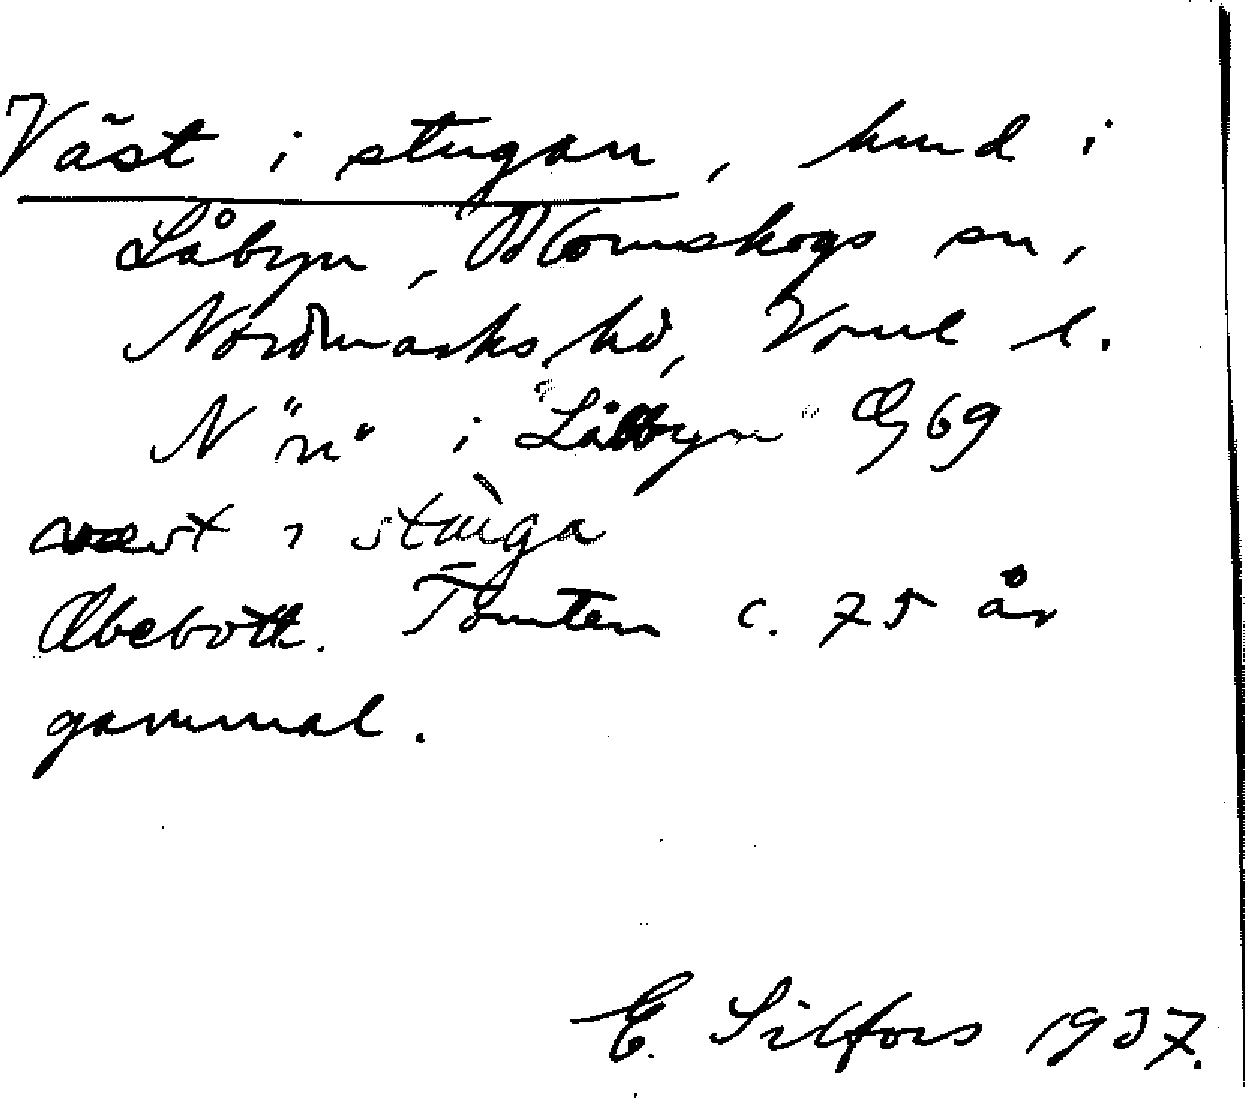 Väst i stugan, hmd i
Låbyn, Blomskogs sn,
Nordmarks hd, Vrml l.
N "n" i "Låbyn" Æ 69
væst i stuga
Obebott. Tomten c. 75 år
gammal.
E. Silfors 1937.